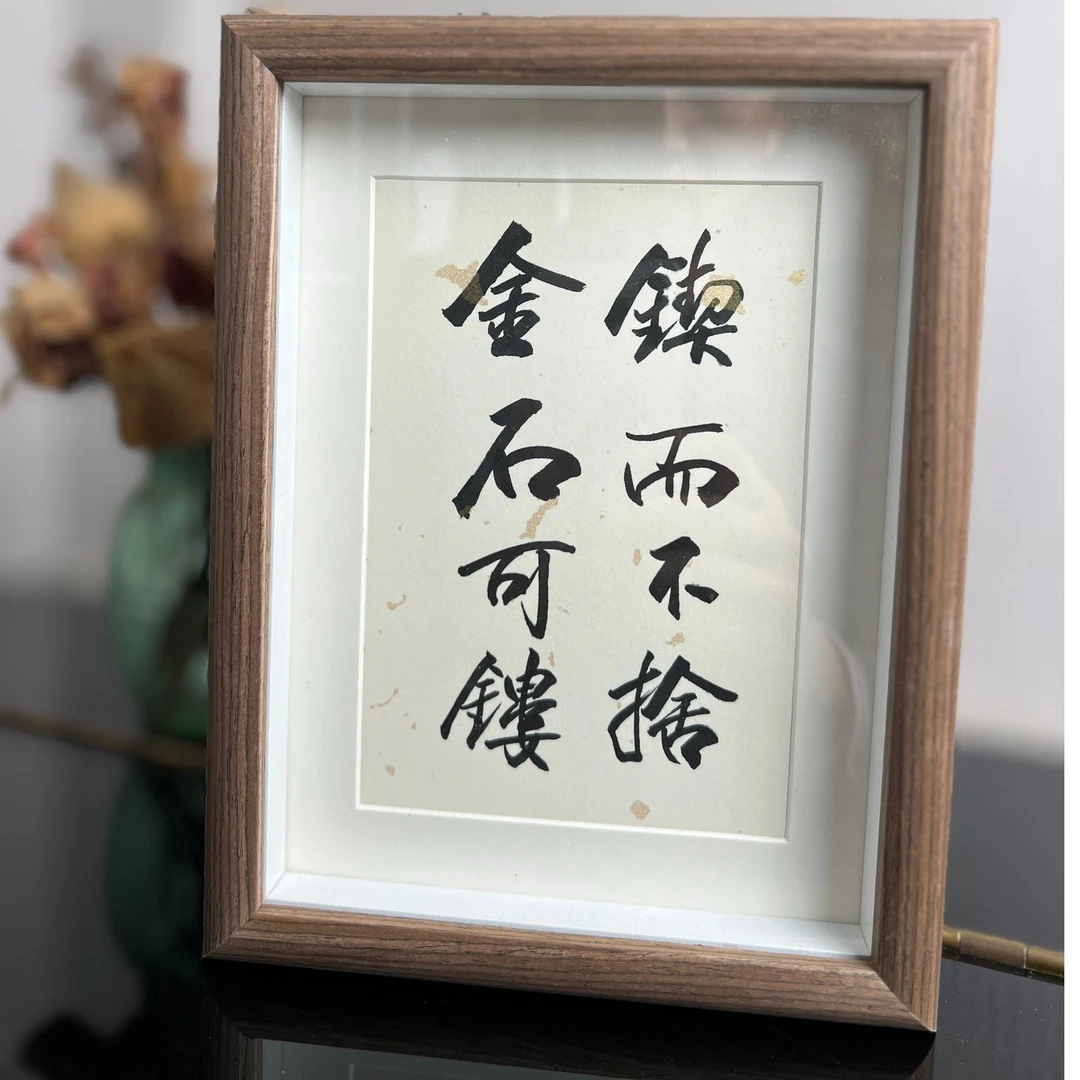 鍥而不捨
金石可鏤